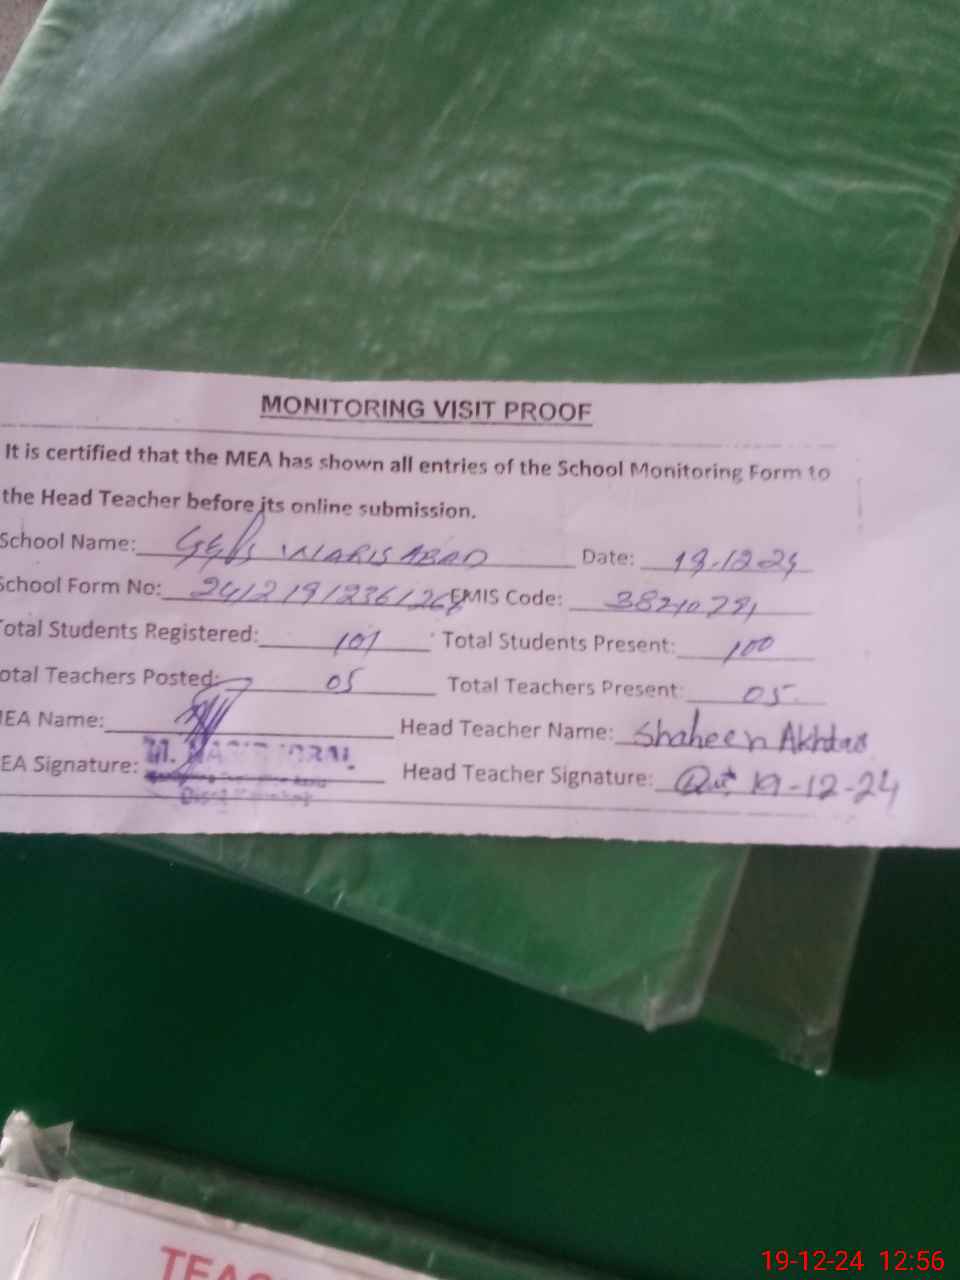 MONITORING VISIT PROOF
It is certified that the MEA has shown all entries of the School Monitoring Form to
the Head Teacher before its online submission.
School Name: WARIS ABAD Date: 19.12.24
School Form No: EMIS Code: 38210791
Total Students Registered: 101 Total Students Present: 100
otal Teachers Posted: 05 Total Teachers Present: 05
EA Name: Head Teacher Name: Shaheen Akhtar
EA Signature: Head Teacher Signature: 19-12-24
TEAC
19-12-24 12:56